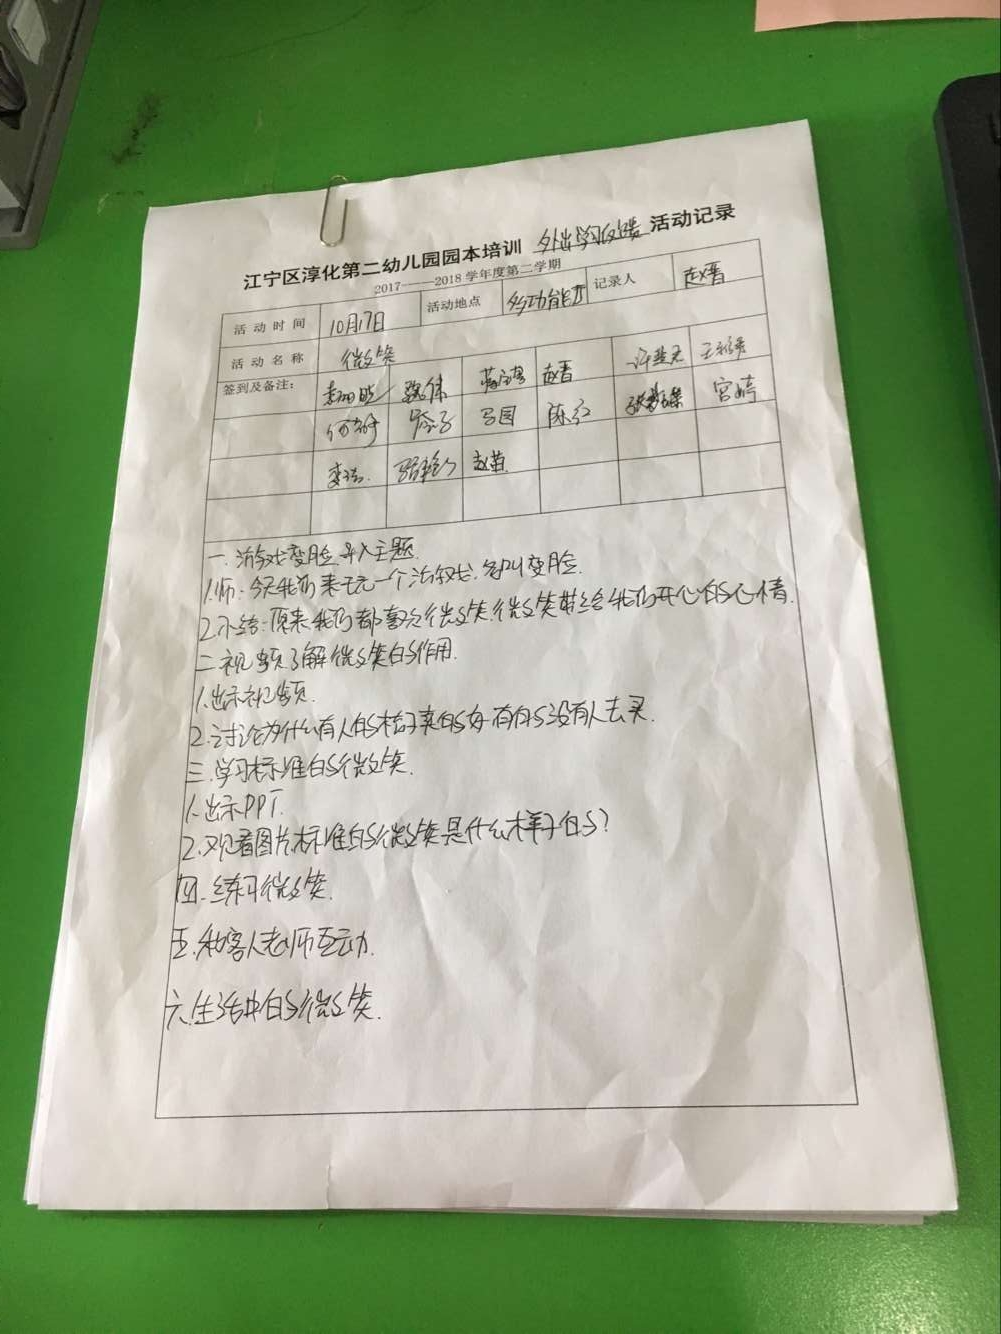 江宁区淳化第二幼儿园园本培训 外出学习反馈 活动记录
2017——2018 学年度第二学期
活动时间 10月17日 活动地点 多功能厅 记录人 赵晋
活动名称 微笑
签到及备注： 魏伟 赵晋
马园 陈红 宫婷
赵苗
一.游戏变脸导入主题.
1.师:今天我们来玩一个游戏.名叫变脸.
2.小结:原来我们都喜欢微笑.微笑带给我们开心的心情.
二.视频了解微笑的作用.
1.出示视频.
2.讨论为什么有人的桔子卖的好.有的没有人去买.
三.学习标准的微笑.
1.出示PPT.
2.观看图片标准的微笑是什么样子的?
四.练习微笑.
五.和客人老师互动.
六.生活中的微笑.